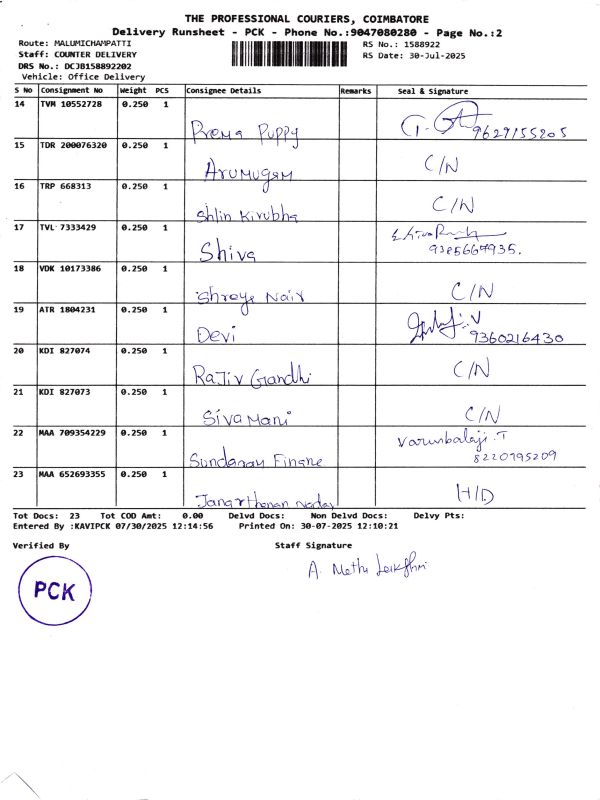 THE PROFESSIONAL COURIERS, COIMBATORE
Delivery Runsheet - PCK - Phone No.:9047080280 - Page No.:2
Route: MALUMICHAMPATTI
Staff: COUNTER DELIVERY
DRS No.: DCJB158892202
Vehicle: Office Delivery
RS No.: 1588922
RS Date: 30-Jul-2025
S No Consignment No Weight PCS Consignee Details Remarks Seal & Signature
14 TVM 10552728 0.250 1 Prema Puppy 9629155205
15 TDR 200076320 0.250 1 Arumugam C/N
16 TRP 668313 0.250 1 Shlin Kirubha C/N
17 TVL 7333429 0.250 1 Shiva 9385667935.
18 VDK 10173386 0.250 1 Shreya Nair C/N
19 ATR 1804231 0.250 1 Devi 9360216430
20 KDI 827074 0.250 1 Rajiv Gandhi C/N
21 KDI 827073 0.250 1 Siva Mani C/N
22 MAA 709354229 0.250 1 Sundaram Finane Varunbalaji.T 8220795209
23 MAA 652693355 0.250 1 H/D
Tot Docs: 23 Tot COD Amt: 0.00 Delvd Docs: Non Delvd Docs: Delvy Pts:
Entered By :KAVIPCK 07/30/2025 12:14:56 Printed On: 30-07-2025 12:10:21
Verified By Staff Signature
PCK